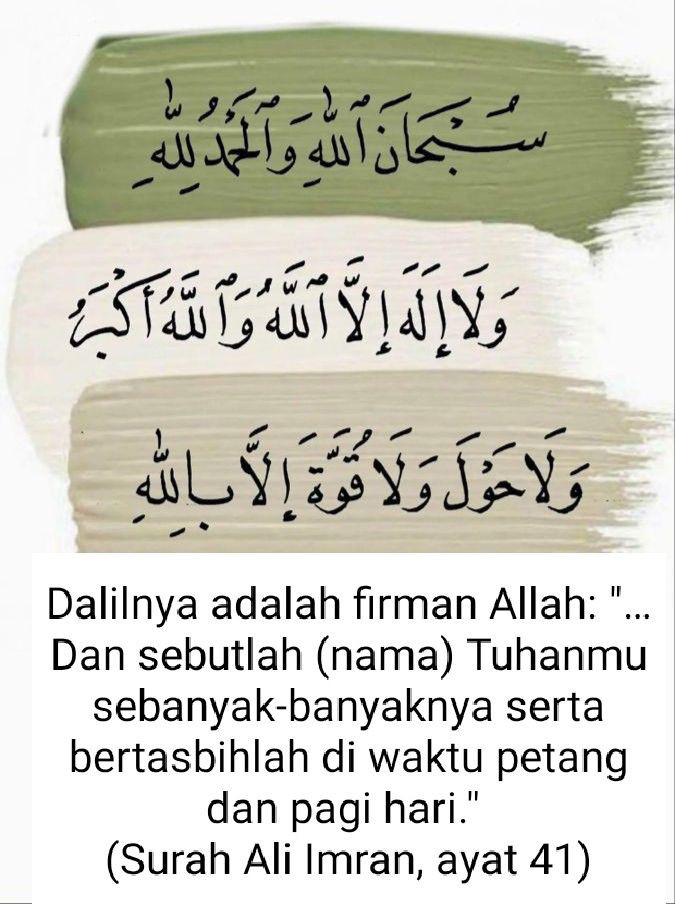 سُبْحَانَ ٱللَّٰهِ وَٱلْحَمْدُ لِلَّٰهِ
وَلَا إِلَٰهَ إِلَّا ٱللَّٰهُ وَٱللَّٰهُ أَكْبَرُ
وَلَا حَوْلَ وَلَا قُوَّةَ إِلَّا بِاللَّٰهِ
Dalilnya adalah firman Allah: "...
Dan sebutlah (nama) Tuhanmu
sebanyak-banyaknya serta
bertasbihlah di waktu petang
dan pagi hari."
(Surah Ali Imran, ayat 41)